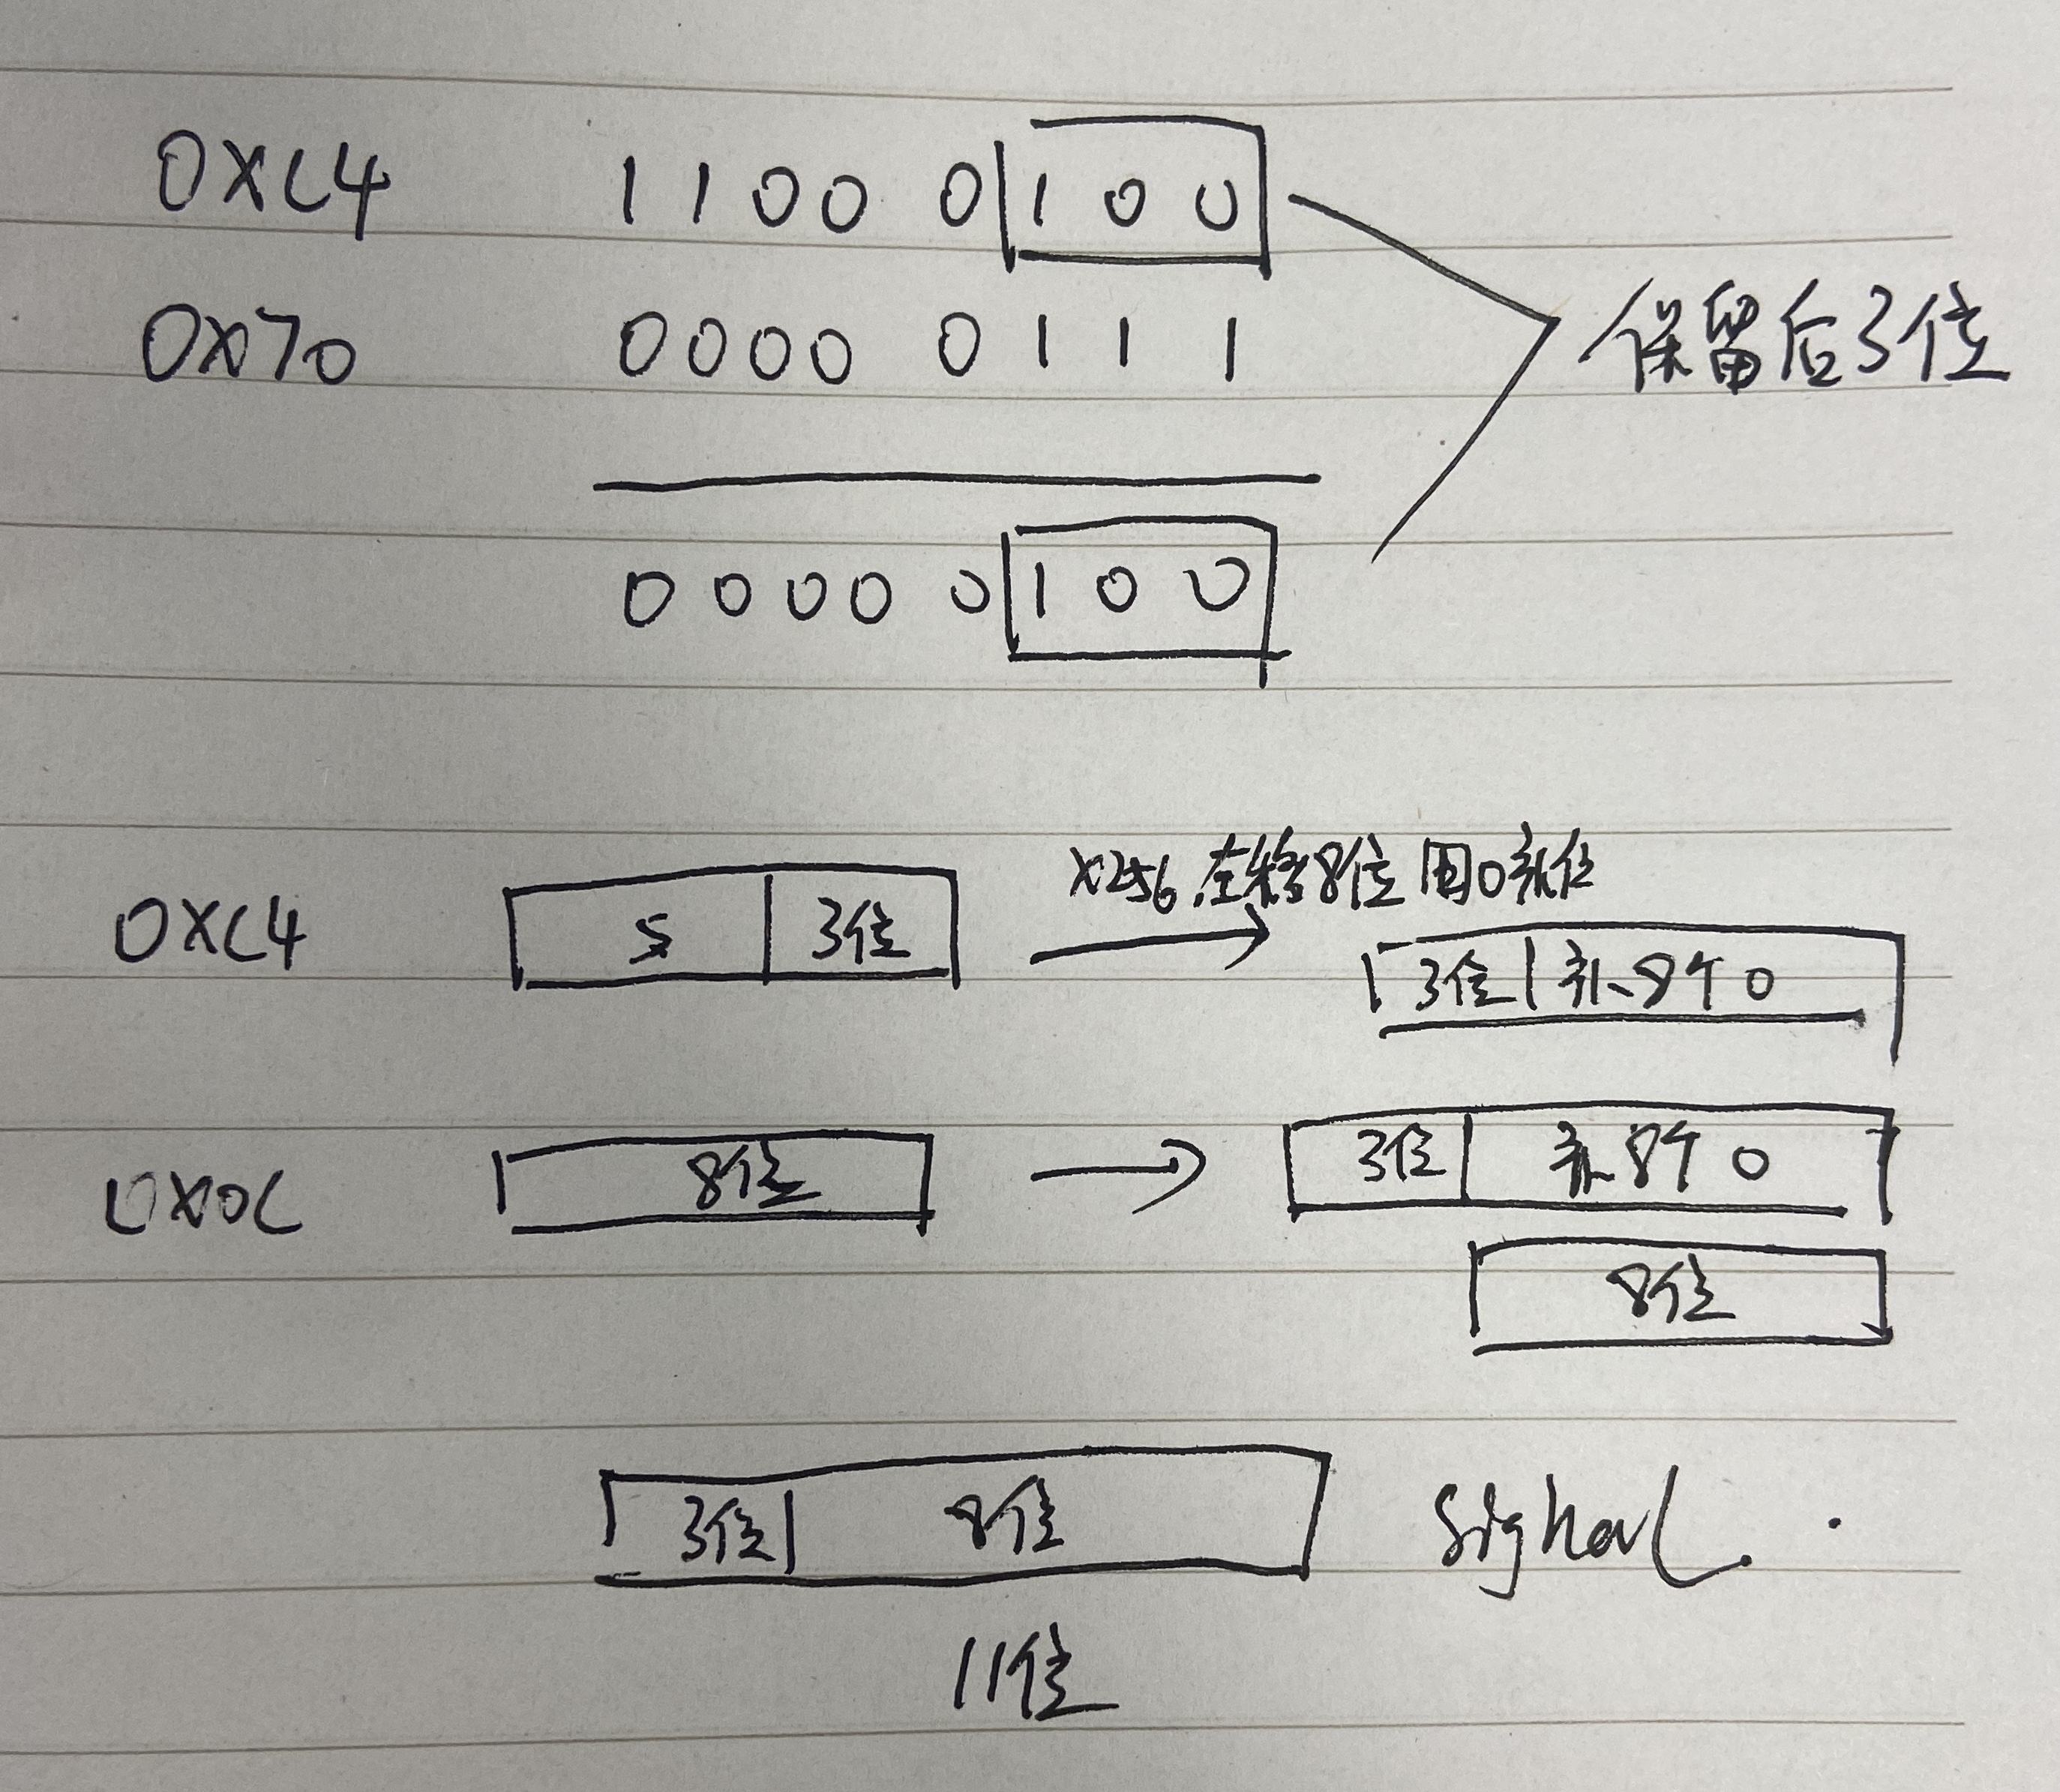 0XC4 1100 0100
0X70 0000 0111
保留后3位
0000 0100
X256 左移8位 用0补位
0XC4 5 3位
3位 补8个0
0X0C 8位 3位 补8个0
8位
3位 8位 Signal.
11位